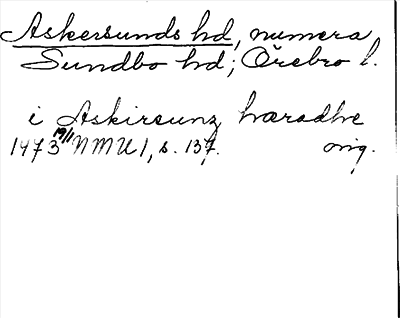 Askersunds hd, numera
Sundbo hd; Örebro l.
i Askirsunz hæradhe
1473 19/1 NMU 1, s. 137. orig.